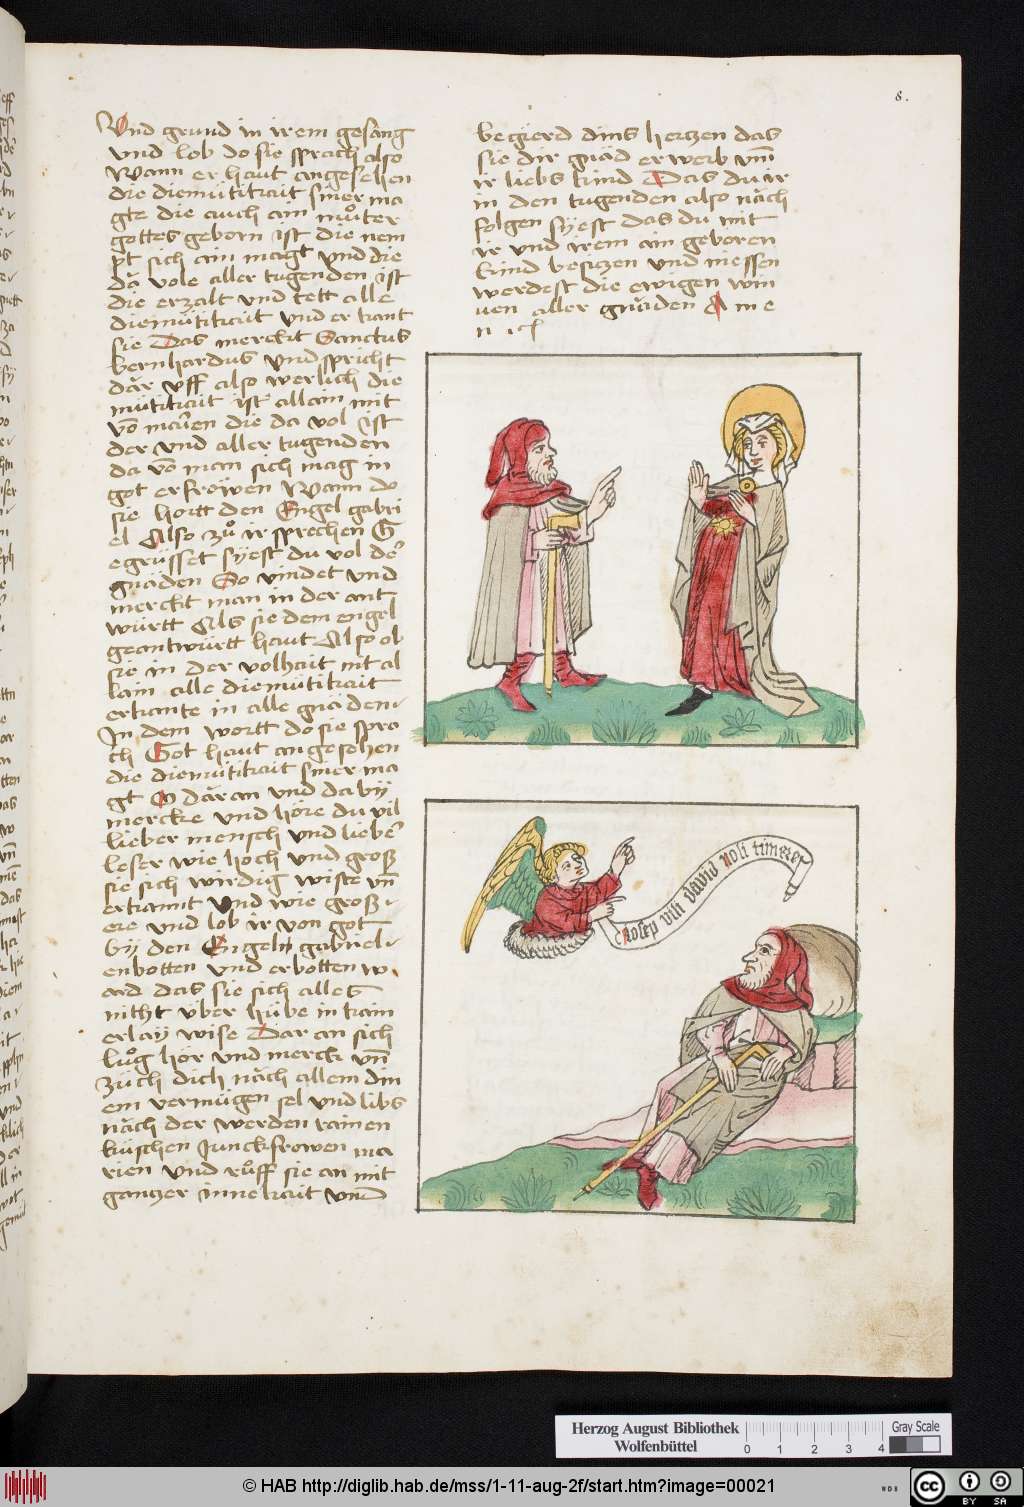 8.
Vnd grund in irem gesang
vnd lob do sie sprach also
Wann er haut angesehen
die diemütikait siner ma
gte die auch ain můter
gottes geborn ist die nem
pt sich ain magt vnd die
dă vole aller tugenden ist
die erzalt vnd tett alle
diemütikait vnd erkant
sie Das merckt Sanctus
bernhardus vnd spricht
dăr vff also werlich die
mütikait ist allain mit
vō der die da vol ist
der vnd aller tugenden
da vō man sich mag in
got erfröwen Wann do
sie hortt den Engel gabri
el Also zů ir sprechen G
egrüsset syest du vol de᷒
gnăden So vindet vnd
merckt man in der ant
württ Als sie dem engel
geantwürtt haut Also ob
sie in der volhait nit al
lain alle diemütikait
erkante in alle gnăden
In dem wortt do sie spra
ch Got haut angesehen
die diemütikait siner ma
gt O dăran vnd da by
mercke vnd höre du vil
lieber mensch vnd liebe᷒
leser wie hoch vnd groß
sie sich wirdig wiste vn̄
erkannt vnd wie große
ere vnd lob ir von got
by den Engeln gabriel
enbotten vnd erbotten w
ard das sie sich alles
nitht über hübe in kain
erlay wise Dar an sich
lůg hör vnd merck vn̄
zuch dich năch allem din
em vermügen sel vnd libs
năch der werden rainen
küschen Junckfrowen ma
rien vnd růff sie an mit
gantzer innekait vnd
begierd dins hertzen das
sie dir gnăd erwerb vm̄
ir liebs kind Das du ir
in den tugenden also năch
folgen syest das du mit
ir vnd irem ain geboren
kind besitzen vnd niessen
werdest die ewigen win
nen aller gnăden A me
n
iosep vili david noli timere
Herzog August Bibliothek
Wolfenbüttel
0 1 2 3 4
Gray Scale
© HAB http://diglib.hab.de/mss/1-11-aug-2f/start.htm?image=00021
WDB
cc BY SA